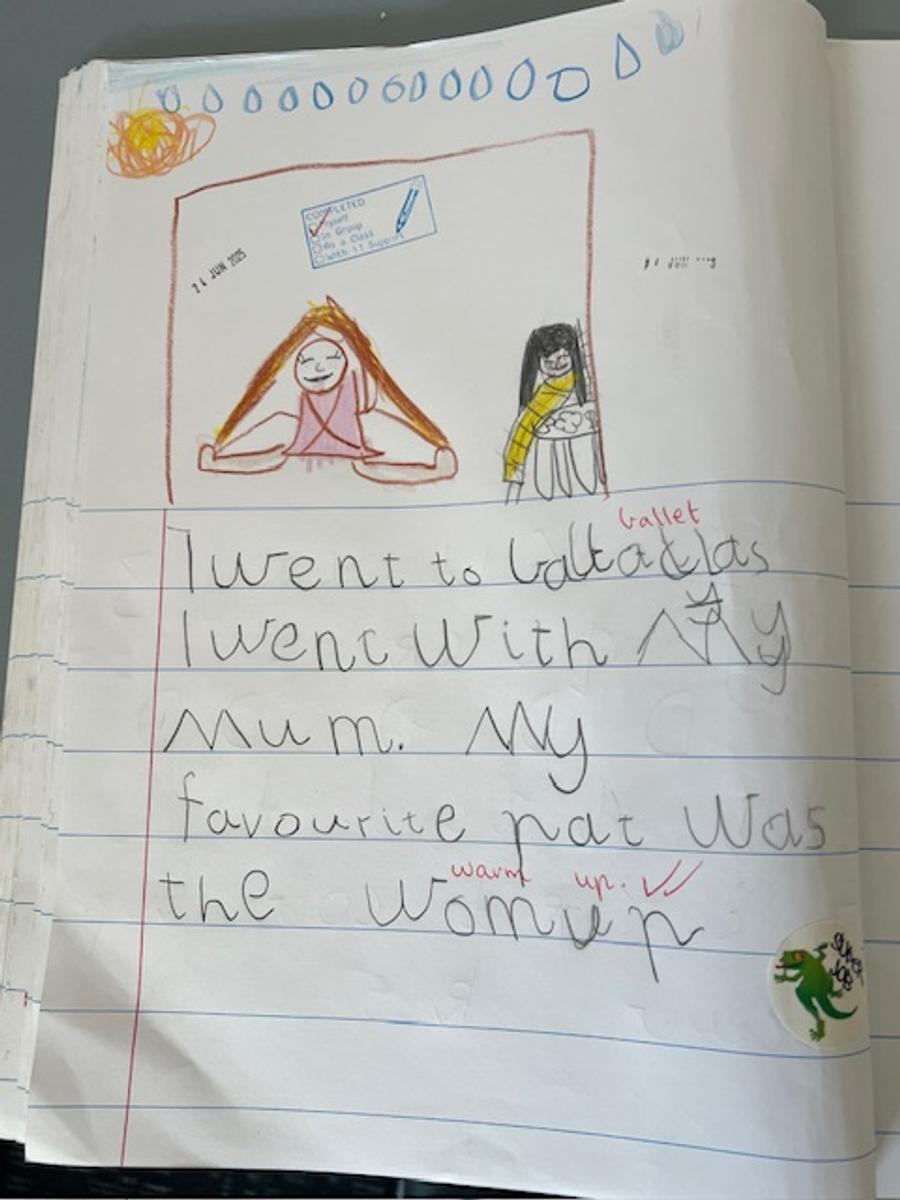 COMPLETED
Myself
In Group
As a Class
With 1:1 Support
24 JUN 2025
ballet
I went to clas
I went with My
Mum. My
favourite pat was
warm up.
the womup
SUPER
JOB